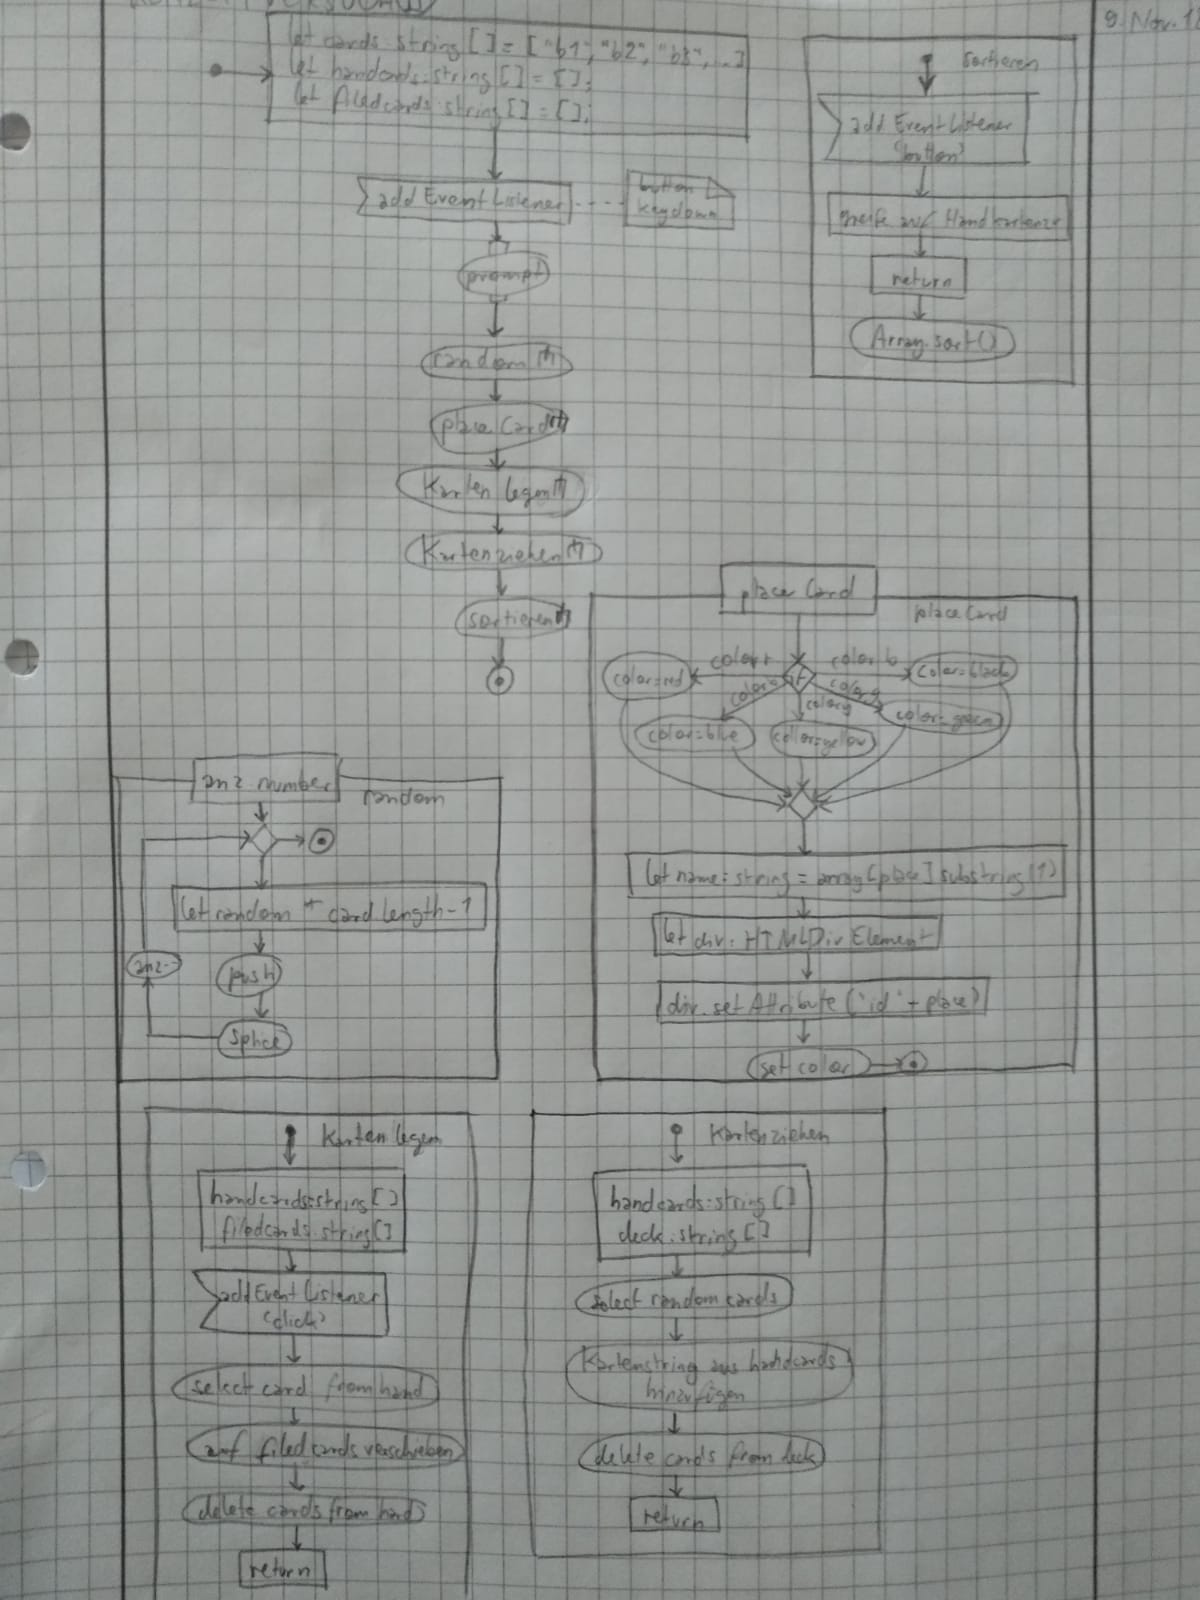 9. Nov. 18
let cards: string [ ] = [ "b1", "b2", "b3", ...]
let handcards: string [ ] = [ ];
let filedcards: string [ ] = [ ];
add Event Listener
button
keydown
prompt
random
place Card
Karten legen
Kartenziehen
sortieren
Sortieren
add EventListener
"button"
greife auf Handkarten zu
return
Array.sort()
place Card
placeCard
color r
color b
color g
color y
color=red
color=black
color=blue
color=yellow
color=green
let name: string = array [place] substring (1)
let div: HTMLDiv Element
div. set Attribute ("id" + place)
set color
anz number
random
let random * card length -1
push
anz--
splice
Karten legen
handcards: string [ ]
filedcards: string [ ]
add Event Listener
(click)
select card from hand
auf filedcards verschieben
delete cards from hand
return
Kartenziehen
handcards: string [ ]
deck: string [ ]
select random cards
Kartenstring aus handcards
hinzufügen
delete cards from deck
return